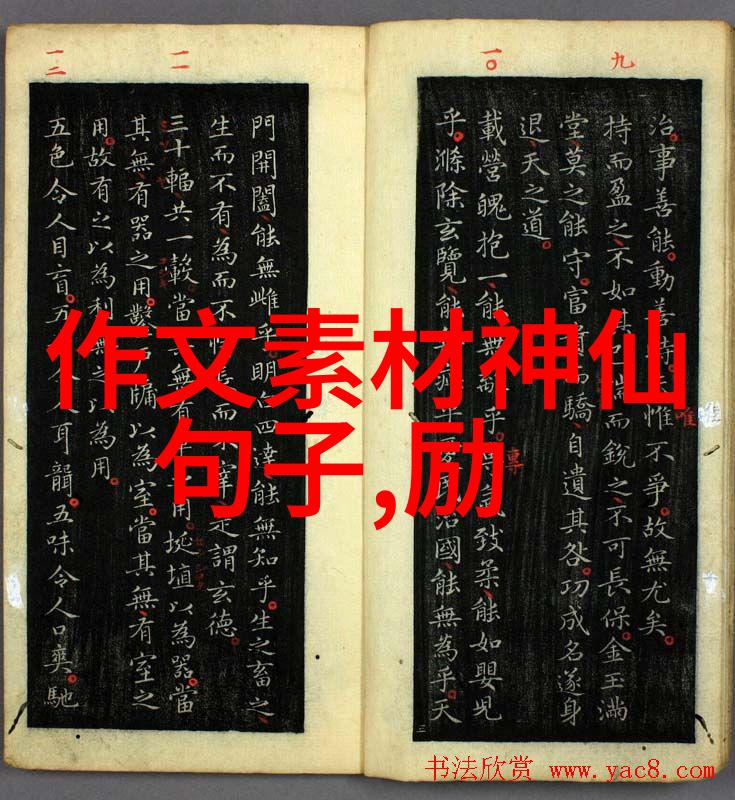 九
一〇
一一
一二
治事善能動善時惟不爭故無尤矣
唯
持而盈之不如其揣而銳之不可長保金玉滿
堂莫之能守富貴而驕自遺其咎功成名遂身
退天之道
載營魄抱一能無離乎氣致柔能如嬰兒
專
乎滌除玄覽能無疵乎民治國能無為乎天
門開闔能無雌乎明白四達能無知乎生之畜之
生而不有為而不恃而不宰是謂玄德
三十輻共一轂當其無有用埏埴以為器當
其無有器之用鑿牖以為室當其無有室之
用故有之以為利無之以為用
五色令人目盲五令人耳聾五味令人口爽馳
作文素材神仙
句子,励
书法欣赏 www.yac8.com